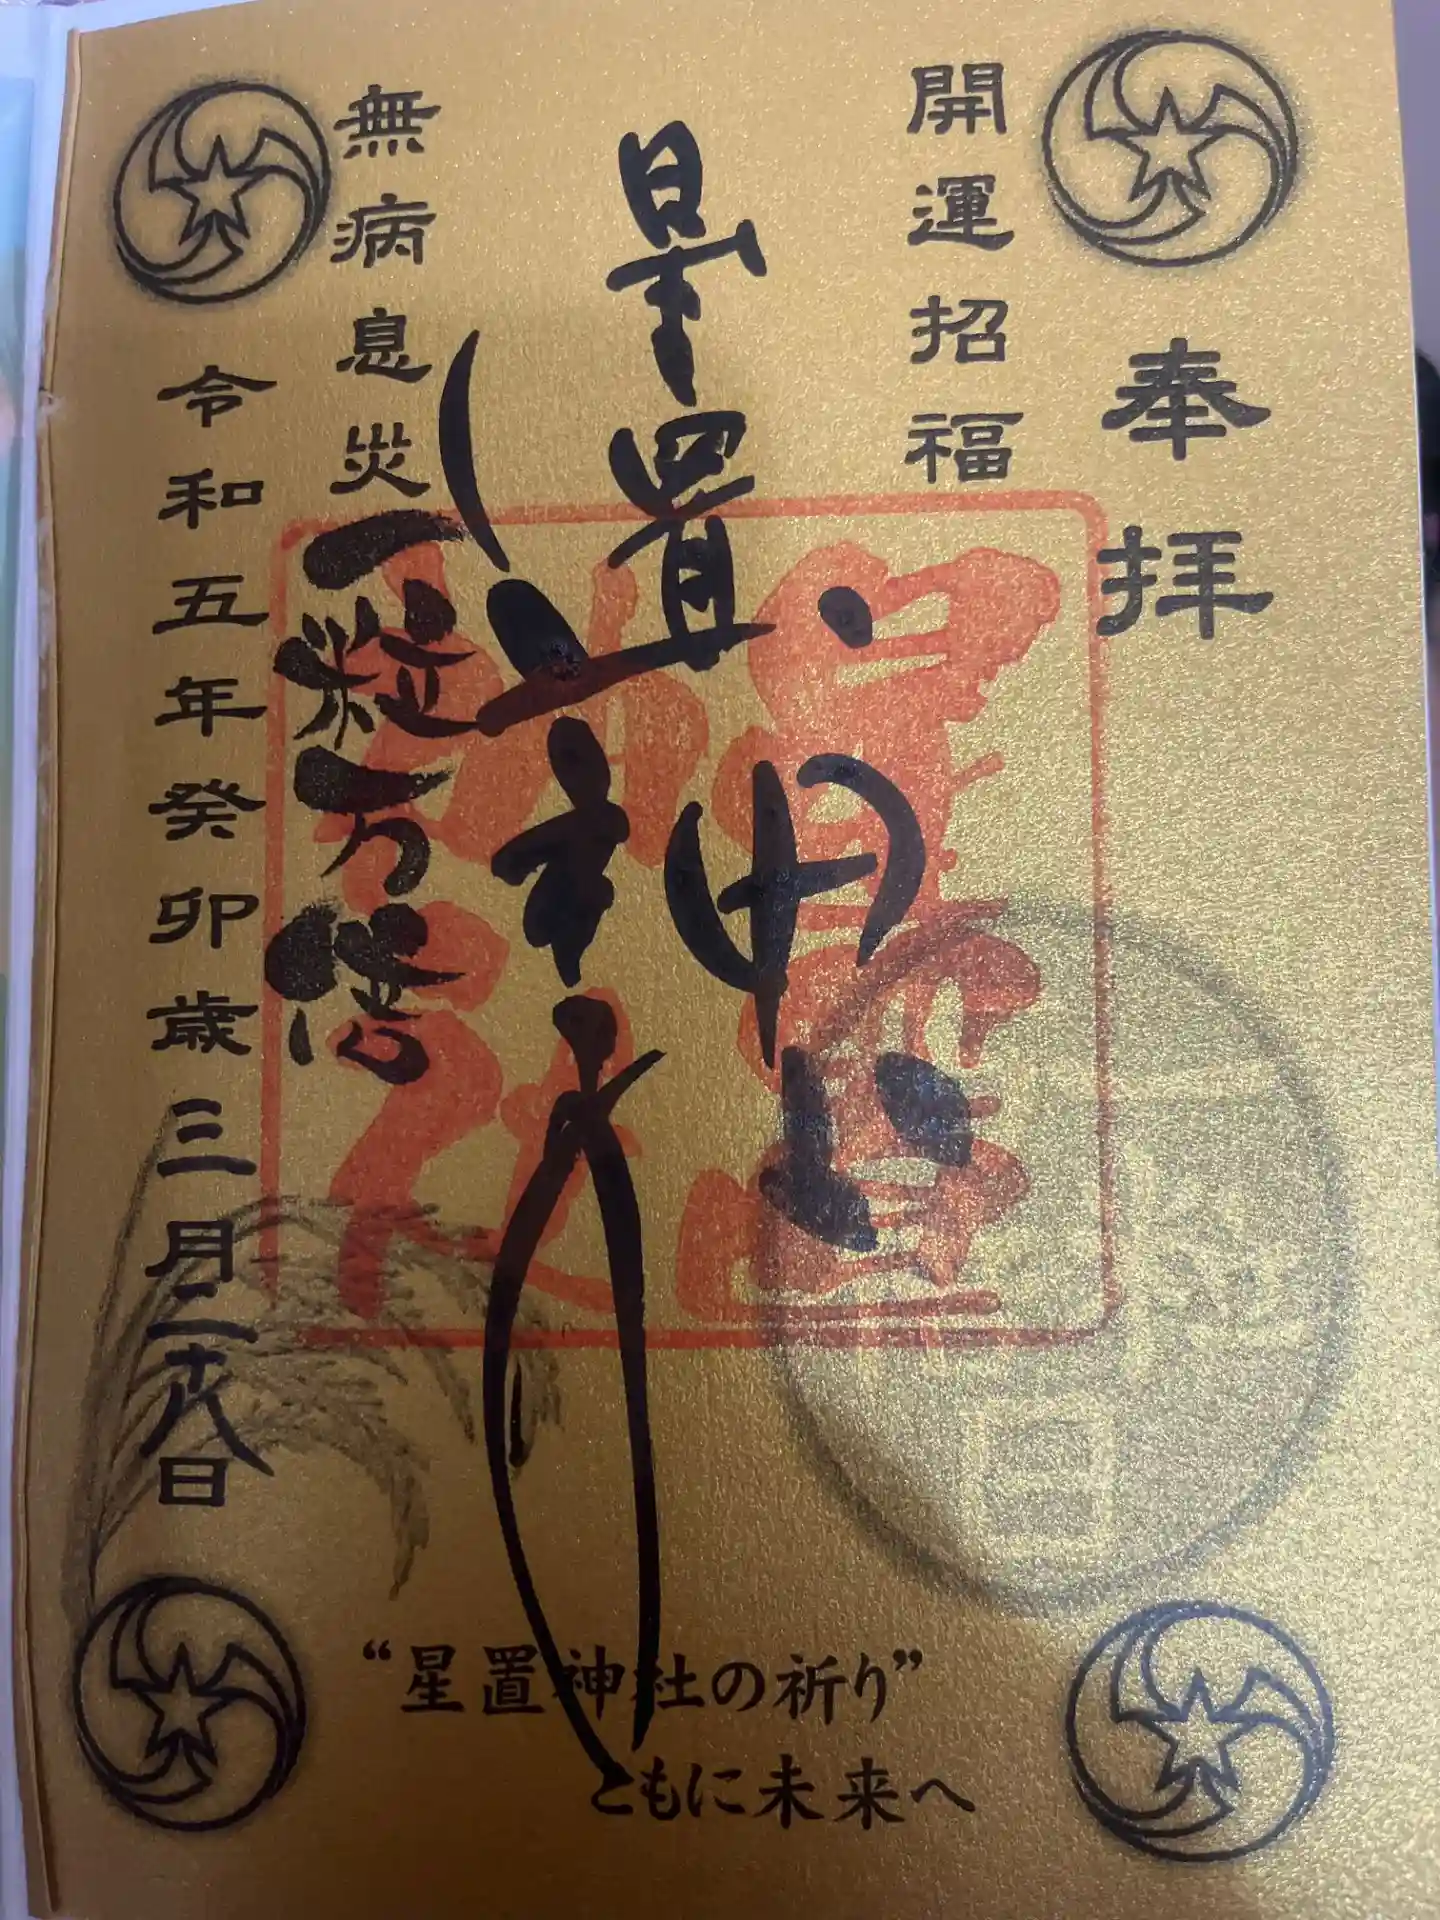 奉拝
開運招福
星置神社
無病息災
一粒万倍
令和五年癸卯歳三月二十八日
星置神社
一粒万倍日
“星置神社の祈り”
ともに未来へ